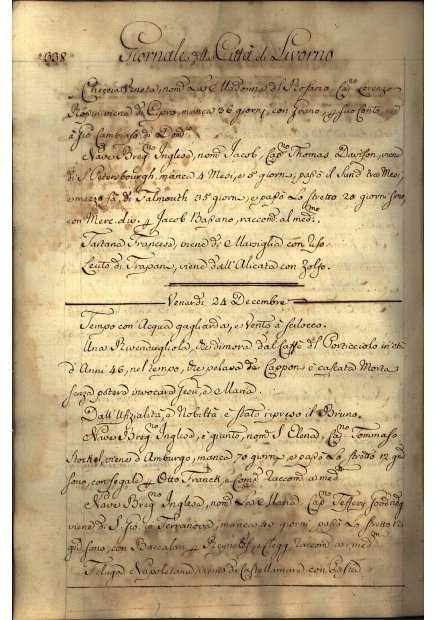 338 Giornale della Città di Livorno
Checcia Veneta, nom. La Madonna del Rosario, Cap.no Lorenzo
viene di Cipro, manca 36 giorni, con Grano p suo Conto,
a Gio. di Dom.co
Nave Breg.no Inglese, nom. Jacob, Cap.no Thomas Davison, viene
di S. Petersbourgh, manca 4 Mesi, e 5 giorni, passò il Sund tre Mesi,
e mezzo fà, di Falmouth 35 giorni, e passò Lo Stretto 20 giorni sono,
con Merc. div. p Jacob Bassano, raccom. al med.mo
Tartana Francese, viene di Marsiglia con
Leuto di Trapani, viene dall'Alicata con Zolfo.
Venardi 24 Decembre
Tempo con Acqua gagliarda, e Vento à Scilocco.
Una Rivendugliola, che dimora dal Caffè del Porticciolo in età
d'Anni 46, nel tempo, che pelava de Capponi è cascata Morta
senza potersi invocare Jesu, e Maria.
Dall'Ufizialità, e Nobiltà è stato ripreso il Bruno.
Nave Breg.no Inglese, è giunto, nom. S. Elena, Cap.no Tommaso
Stockel, viene d'Amburgo, manca 70 giorni, e passò Lo Stretto 12
sono, con Segale p Otto Franck, e Comp. Raccom. a med.mi
Nave Breg.no Inglese, nom. La Maria Cap.no Jeffery
viene di S. Gio. in Terranova, manca 40 giorni, passò Lo Stretto 12
sono, con Baccalari p Reynolds, e Clegg Raccom. a med.mi
Feluga Napoletana, viene da Castellamare con Paste